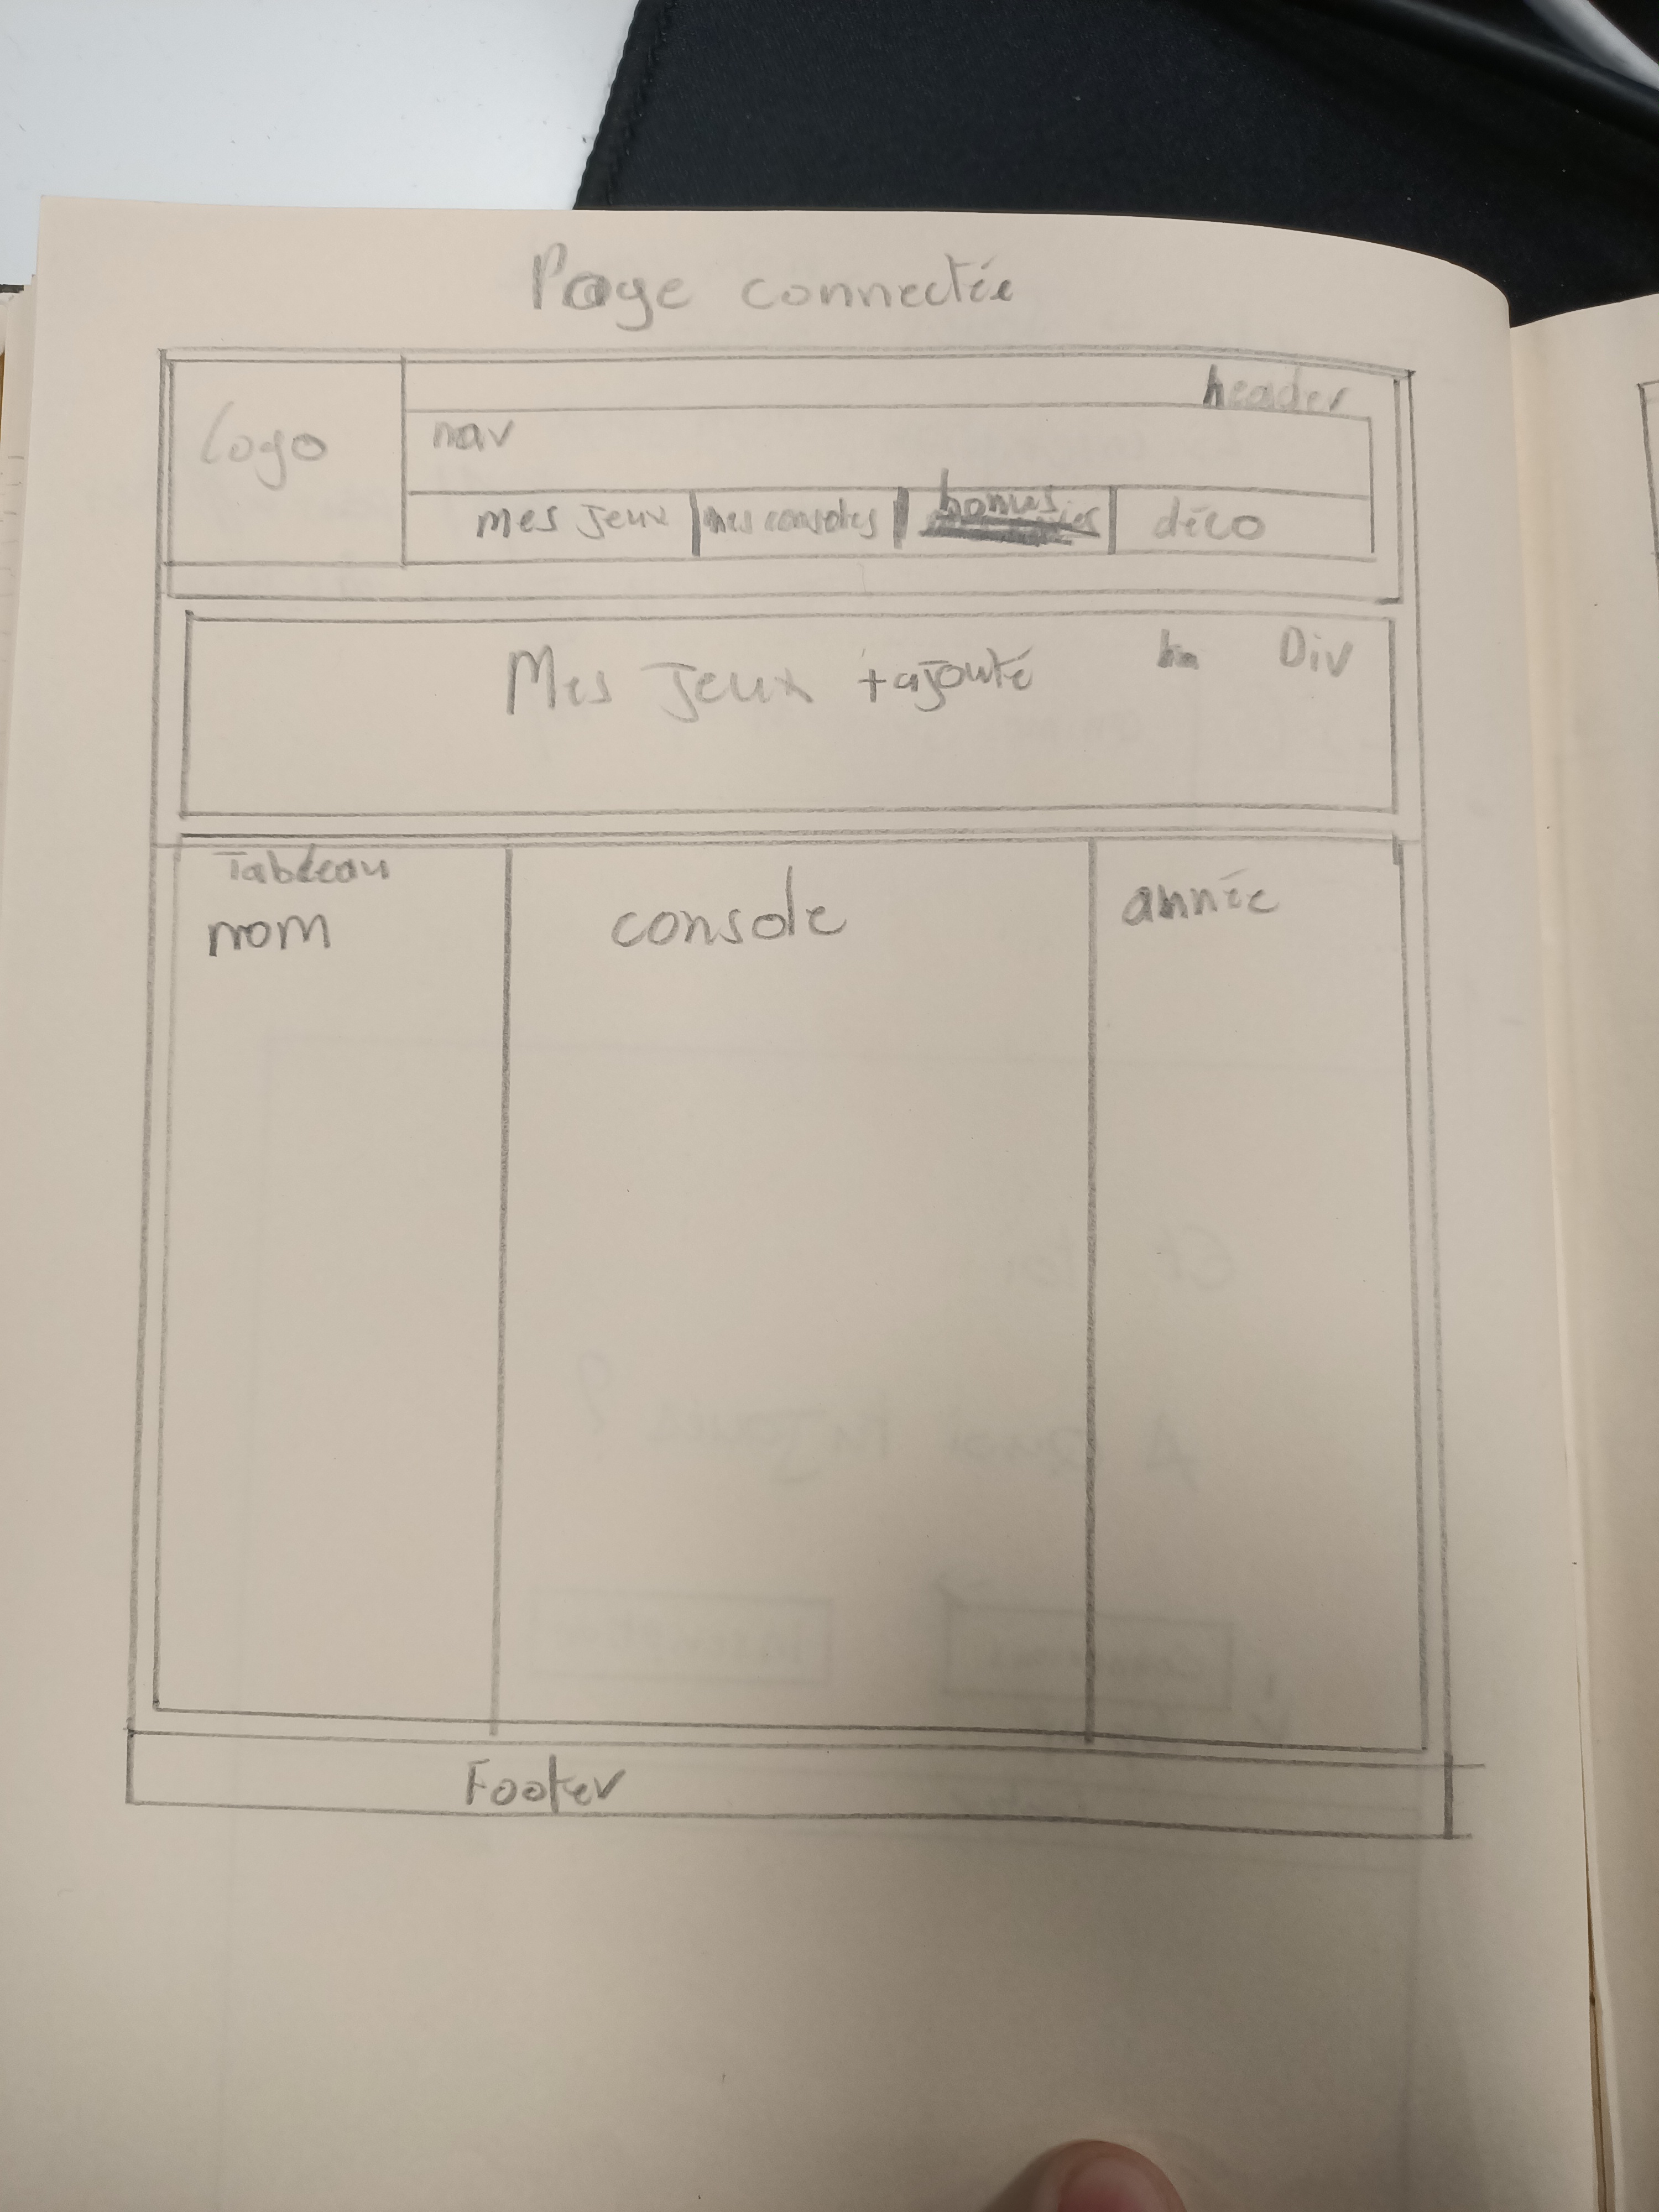 Page connectée
header
Logo
nav
mes jeux mes consoles bonus déco
Mes jeux + ajouté Div
Tableau
nom console année
Footer